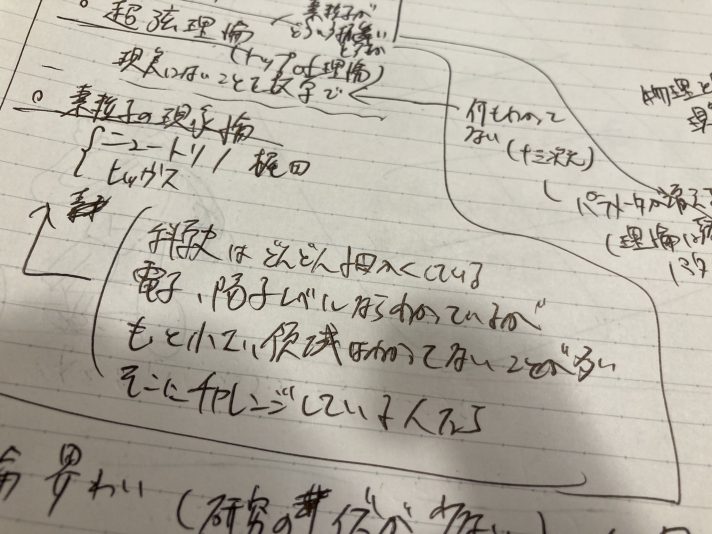 超弦理論
素粒子が
どういう振舞い
とるか
(トップof理論)
現実にないことを数学で
何もわかって
ない
(十三次元)
物理と
パラメータが増える
(理論は
素粒子の現象論
ニュートリノ 梶田
ヒッグス
科学史はどんどん細かくしている
電子、陽子レベルならわかっているが
もっと小さい領域はわかってないことが多い
そこにチャレンジしている人たち
界わい
(研究の